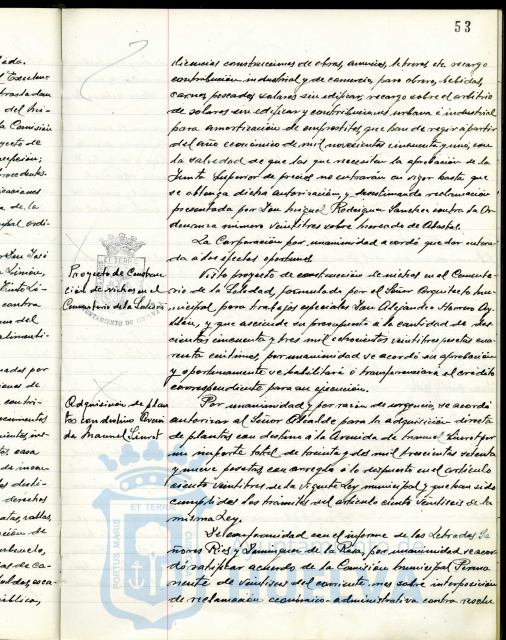 53
licencias construcciones de obras, anuncios, letreros etc. recargo
contribución industrial y de comercio, paro obrero, bebidas,
carnes, pescados, solares sin edificar, recargo sobre el arbitrio
de solares sin edificar y contribuciones urbana e industrial
para amortización de empréstitos, que han de regir a partir
del año económico de mil novecientos cincuenta y uno, con
la salvedad de que las que necesitan la aprobación de la
Junta Superior de precios no entrarán en vigor hasta que
se obtenga dicha autorización, y desestimando reclamación
presentada por Don Miguel Rodriguez Sanchez contra la Or-
denanza número veintitres sobre mercado de Abastos.
La Corporación por unanimidad acordó quedar entera-
da a los efectos oportunos.
Proyecto de Construc-
ción de nichos en el
Cementerio de la Soledad
Visto proyecto de construcción de nichos en el Cemente-
rio de la Soledad, formulado por el Señor Arquitecto mu-
nicipal para trabajos especiales Don Alejandro Herrero Ay-
llón, y que asciende su presupuesto a la cantidad de dos-
cientas cincuenta y tres mil ochocientas veintitres pesetas cua-
renta centimos, por unanimidad se acordó su aprobación
y oportunamente se habilitará ó transferirá el crédito
correspondiente para su ejecución.
Adquisición de plan-
tas con destino Avenida
de Manuel Siurot
Por unanimidad y por razón de urgencia, se acordó
autorizar al Señor Alcalde para la adquisición directa
de plantas con destino á la Avenida de Manuel Siurot por
un importe total de treinta y dos mil trescientas setenta
y nueve pesetas, con arreglo á lo dispuesto en el artículo
ciento veintitres de la vigente Ley municipal y que han sido
cumplidos los trámites del artículo ciento veintiseis de la
misma Ley.
De conformidad con el informe de los Letrados Se-
ñores Ríos y Dominguez de la Rosa, por unanimidad se acor-
dó ratificar acuerdo de la Comisión Municipal Perma-
nente de veintiseis del corriente mes sobre interposición
de reclamación económico-administrativa contra resolu-
PORTUS MARIS
ET TERRAE
Ayuntamiento de
HUELVA